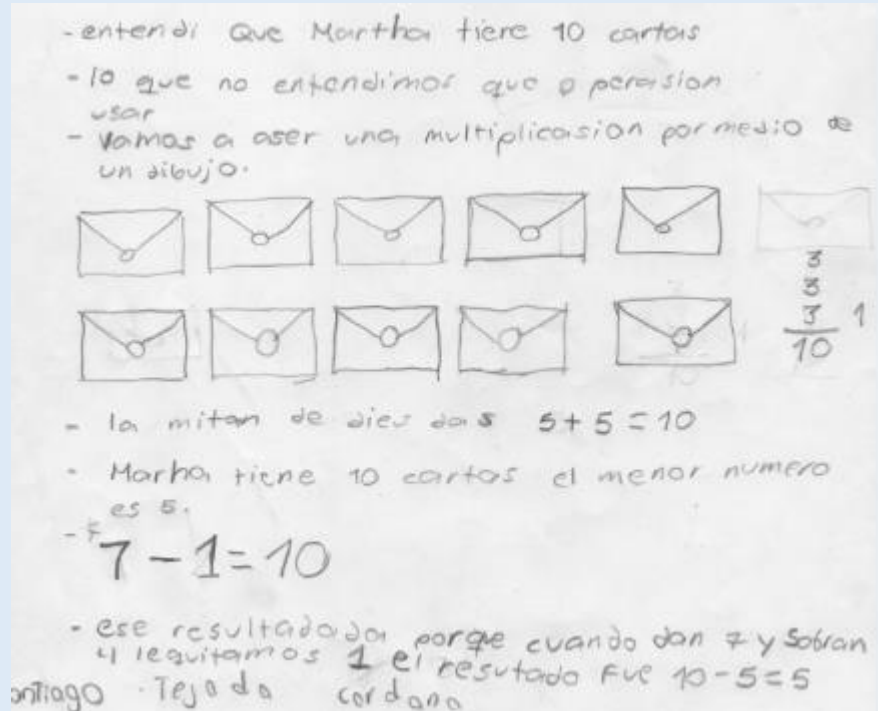 - entendi Que Martha tiere 10 cartas
- lo que no entendimos que operasion
usar
- vamos a aser una multiplicasion por medio de
un dibujo.
3
3
3 1
10
- la mitan de dies das 5+5=10
- Marha tiene 10 cartas el menor numero
es 5.
- 7-1=10
- ese resultadada porqe cuando dan 7 y sobran
y lequitamos 1 el resutado fue 10-5=5
ontiago Tejada cordano